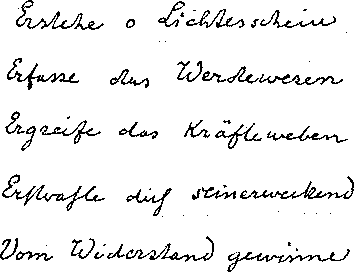 Erstehe o Lichtesschein
Erfasse das Werdewesen
Ergreife das Kräfteweben
Erstrahle dich seinerweckend
Vom Widerstand gewinne